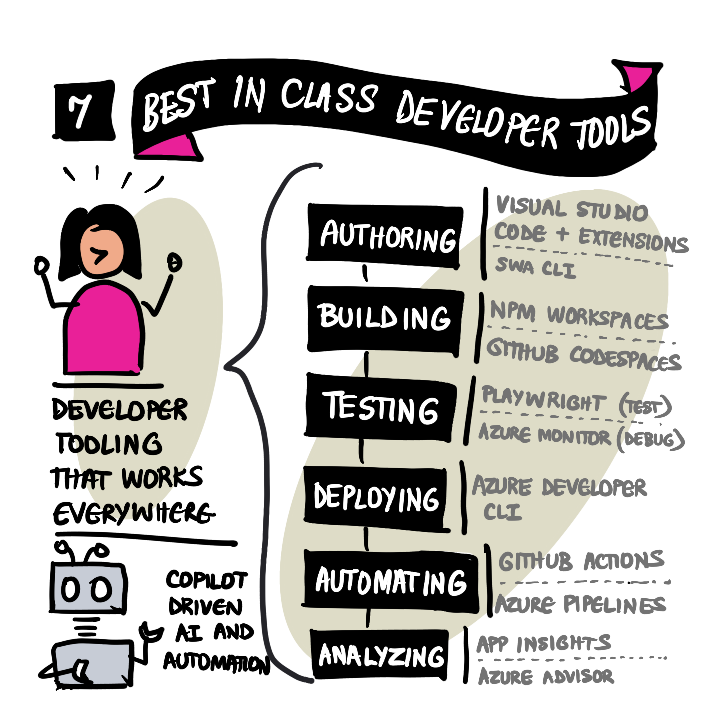 7
BEST IN CLASS DEVELOPER TOOLS
DEVELOPER
TOOLING
THAT WORKS
EVERYWHERE
COPILOT
DRIVEN
AI AND
AUTOMATION
AUTHORING
VISUAL STUDIO
CODE + EXTENSIONS
SWA CLI
BUILDING
NPM WORKSPACES
GITHUB CODESPACES
TESTING
PLAYWRIGHT (TEST)
AZURE MONITOR (DEBUG)
DEPLOYING
AZURE DEVELOPER
CLI
AUTOMATING
GITHUB ACTIONS
AZURE PIPELINES
ANALYZING
APP INSIGHTS
AZURE ADVISOR